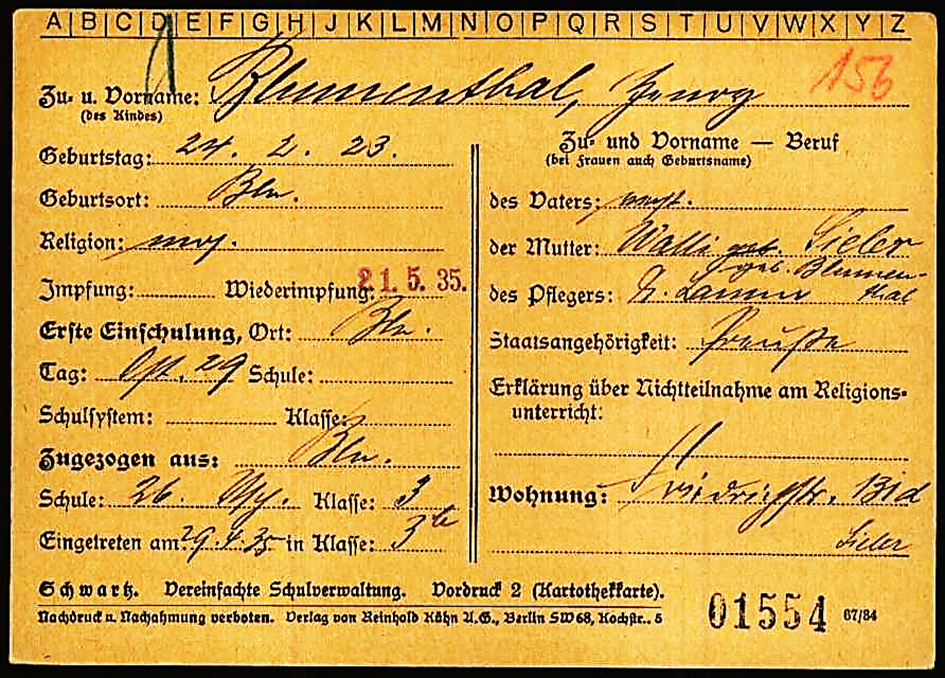 A B C D E F G H J K L M N O P Q R S T U V W X Y Z
156
Zu- u. Vorname: Blumenthal, Georg
(des Kindes)
Geburtstag: 24. 2. 23.
Geburtsort: Bln.
Religion: mos.
Impfung: Wiederimpfung: 21. 5. 35.
Erste Einschulung, Ort: Bln.
Tag: Ost. 29 Schule:
Schulsystem: Klasse:
Zugezogen aus: Bln.
Schule: 26. Klasse: 3
Eingetreten am 29.4.35 in Klasse: 3b
Zu- und Vorname — Beruf
(bei Frauen auch Geburtsname)
des Vaters:
der Mutter: Walli geb. Sieler
geb. Blumen-
des Pflegers: thal
Staatsangehörigkeit: Preuße
Erklärung über Nichtteilnahme am Religions-
unterricht:
Wohnung: Friedrichstr.
Sieler
Schwartz. Vereinfachte Schulverwaltung. Vordruck 2 (Kartothekkarte).
Nachdruck u. Nachahmung verboten. Verlag von Reinhold Kühn A.G., Berlin SW68, Kochstr.. 5
01554 67/84